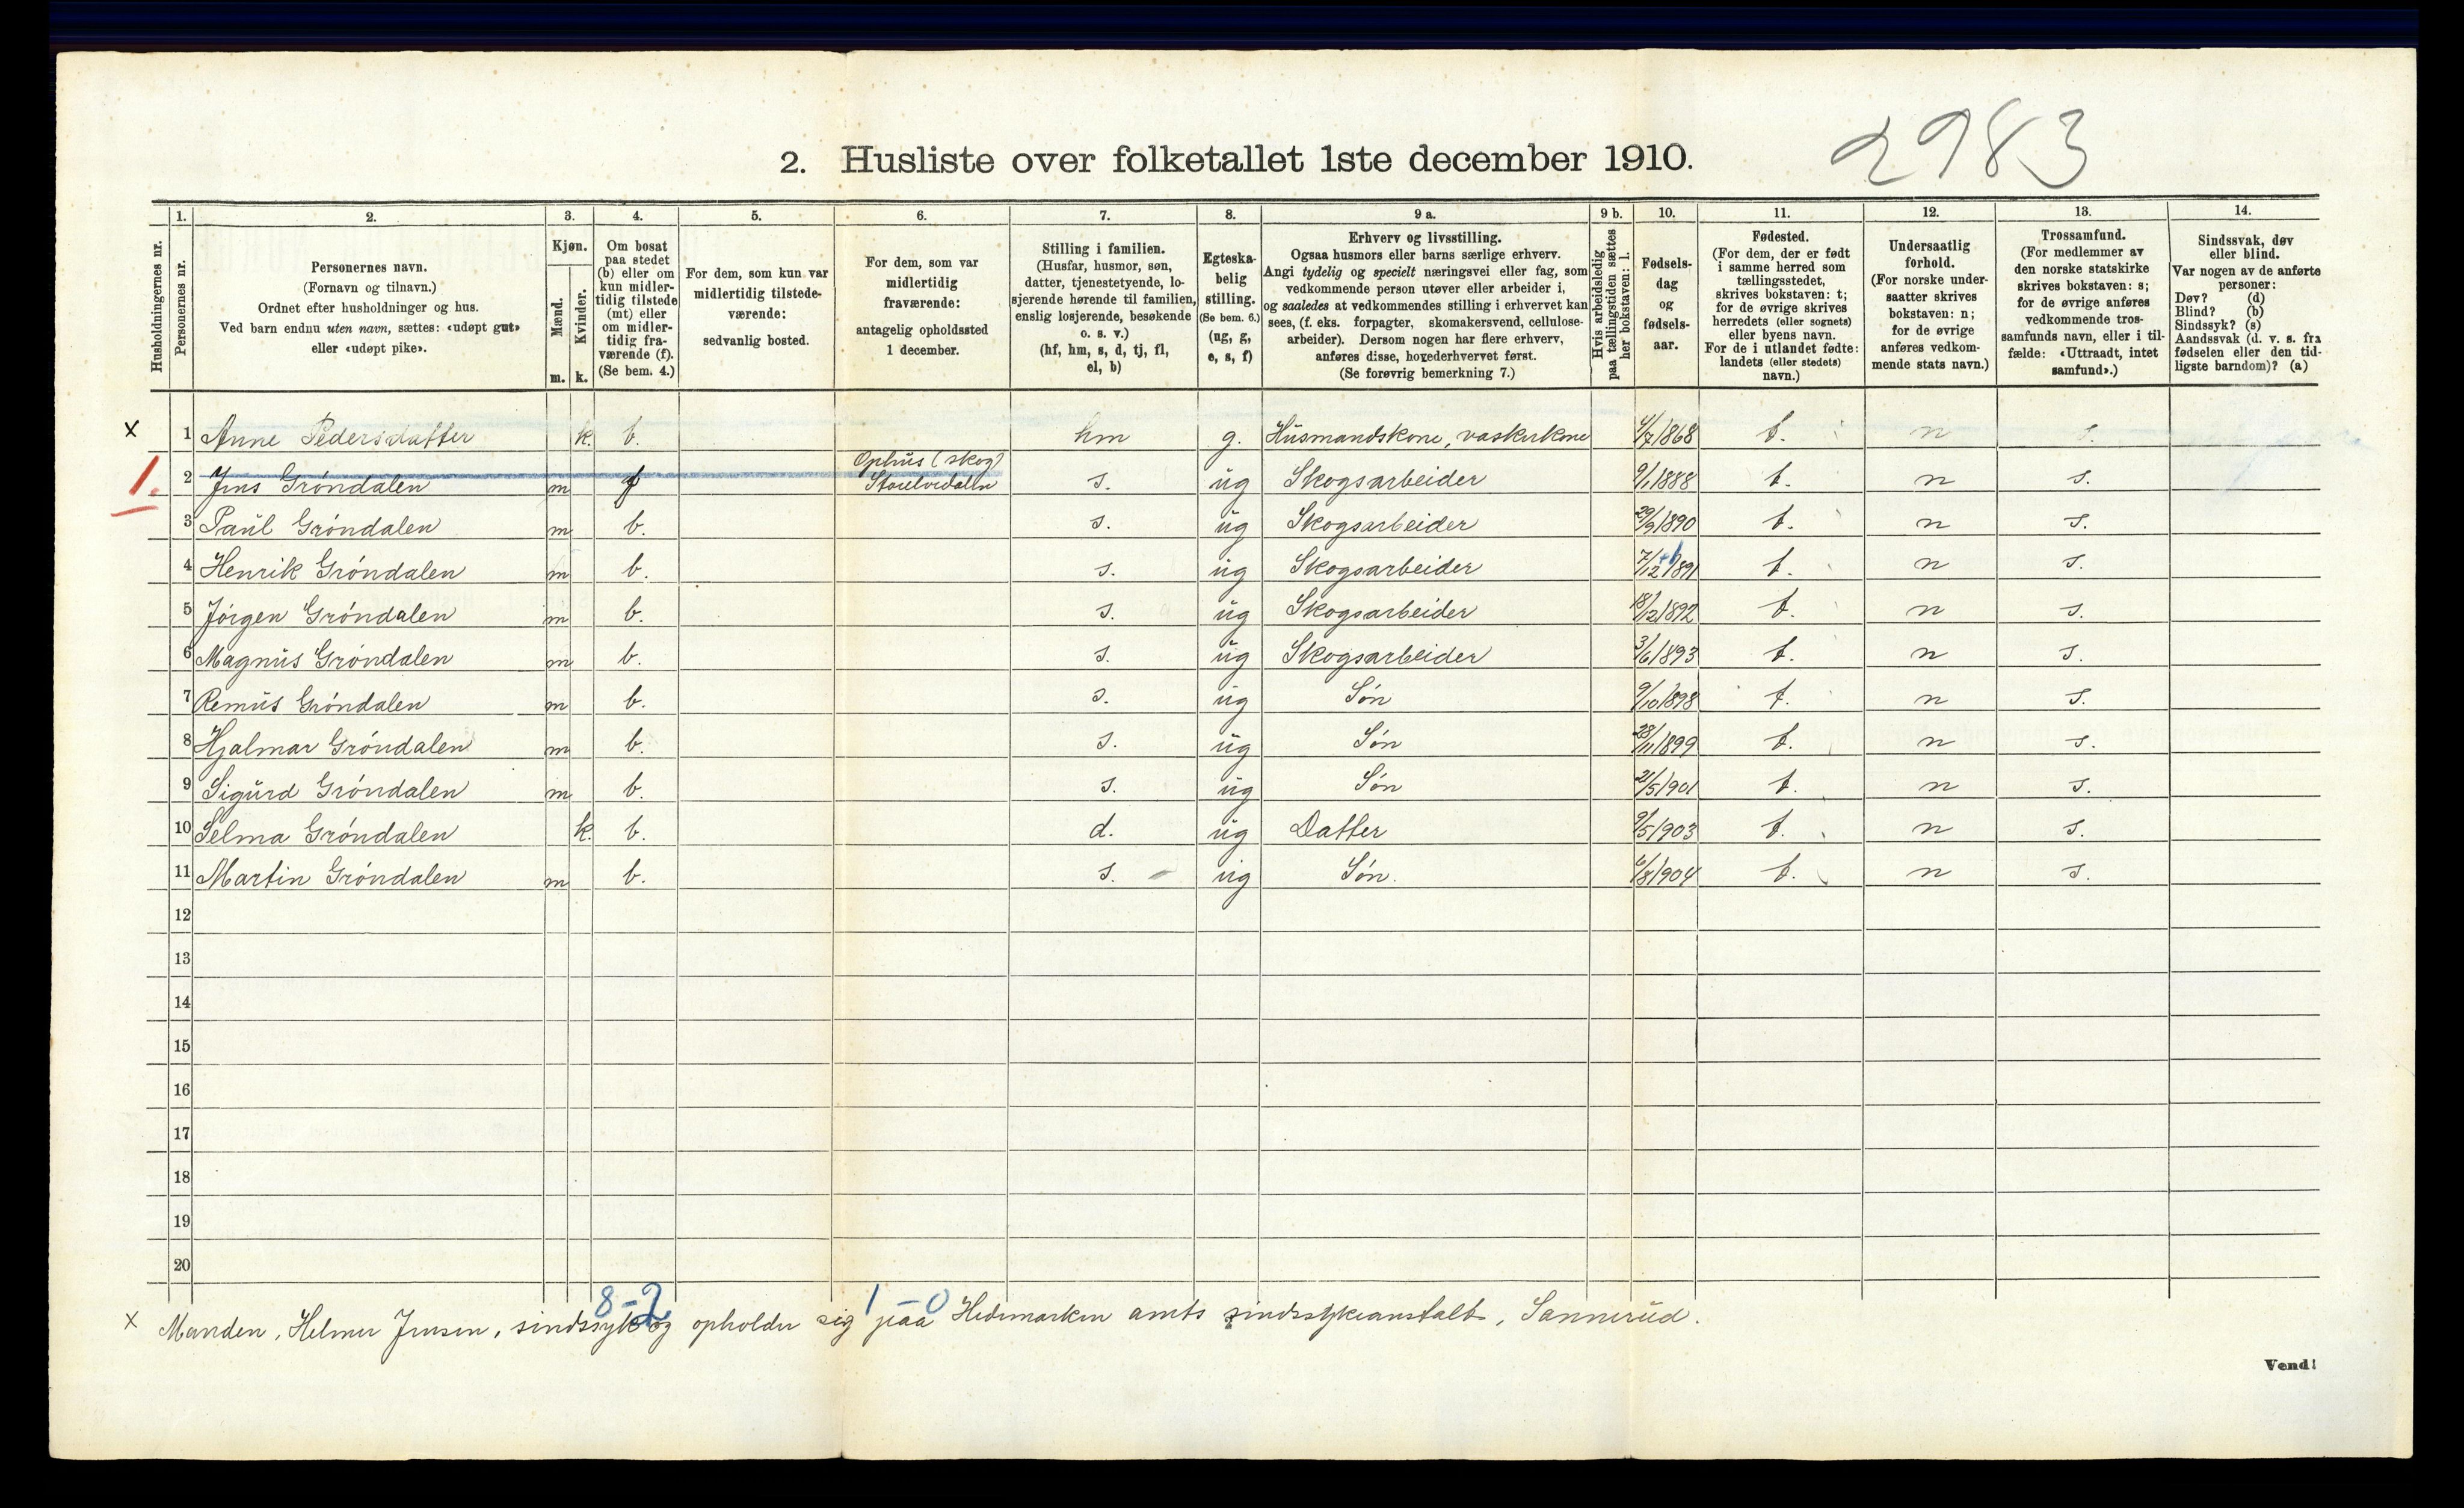 2983
2. Husliste over folketallet 1ste december 1910.
Husholdningernes nr.
1. Personernes nr.
2. Personernes navn. (Fornavn og tilnavn.) Ordnet efter husholdninger og hus. Ved barn endnu uten navn, sættes: «udøpt gut» eller «udøpt pike».
3. Kjøn. Mænd. m. Kvinder. k.
4. Om bosat paa stedet (b) eller om kun midlertidig tilstede (mt) eller om midlertidig fraværende (f). (Se bem. 4.)
5. For dem, som kun var midlertidig tilstedeværende: sedvanlig bosted.
6. For dem, som var midlertidig fraværende: antagelig opholdssted 1 december.
7. Stilling i familien. (Husfar, husmor, søn, datter, tjenestetyende, losjerende hørende til familien, enslig losjerende, besøkende o. s. v.) (hf, hm, s, d, tj, fl, el, b)
8. Egteskabelig stilling. (Se bem. 6.) (ug, g, e, s, f)
9 a. Erhverv og livsstilling. Ogsaa husmors eller barns særlige erhverv. Angi tydelig og specielt næringsvei eller fag, som vedkommende person utøver eller arbeider i, og saaledes at vedkommendes stilling i erhvervet kan sees, (f. eks. forpagter, skomakersvend, cellulosearbeider). Dersom nogen har flere erhverv, anføres disse, hovederhvervet først. (Se forøvrig bemerkning 7.)
9 b. Hvis arbeidsledig paa tællingstiden sættes her bokstaven: l.
10. Fødselsdag og fødselsaar.
11. Fødested. (For dem, der er født i samme herred som tællingsstedet, skrives bokstaven: t; for de øvrige skrives herredets (eller sognets) eller byens navn. For de i utlandet fødte: landets (eller stedets) navn.)
12. Undersaatlig forhold. (For norske undersaatter skrives bokstaven: n; for de øvrige anføres vedkommende stats navn.)
13. Trossamfund. (For medlemmer av den norske statskirke skrives bokstaven: s; for de øvrige anføres vedkommende trossamfunds navn, eller i tilfælde: «Uttraadt, intet samfund».)
14. Sindssvak, døv eller blind. Var nogen av de anførte personer: Døv? (d) Blind? (b) Sindssyk? (s) Aandssvak (d. v. s. fra fødselen eller den tidligste barndom)? (a)
x 1 Anne Pedersdatter k. b. hm g. Húsmandskone, vaskerkone 4/7 1868 t. n s.
1. 2 Jens Gróndalen m f Ophus (skog) Storelvedalen s. úg Skogsarbeider 9/1 1888 t. n s.
3 Paúl Gróndalen m b. s. úg Skogsarbeider 29/9 1890 t. n s.
4 Henrik Gróndalen m b. s. úg Skogsarbeider 7/12 1891 t. n s.
5 Jörgen Gróndalen m b. s. úg Skogsarbeider 18/12 1892 t. n s.
6 Magnús Gróndalen m b. s. úg Skogsarbeider 3/6 1893 t. n s.
7 Remús Gróndalen m b. s. úg Søn 9/10 1898 t. n s.
8 Hjalmar Gróndalen m b. s. úg Søn 28/11 1899 t. n s.
9 Sigúrd Gróndalen m b. s. úg Søn 21/5 1901 t. n s.
10 Selma Gróndalen k. b. d. úg Datter 9/5 1903 t. n s.
11 Martin Gróndalen m b. s. úg Søn. 6/8 1904 t. n s.
12
13
14
15
16
17
18
19
20
8-2 1-0
x Manden, Helmer Jensen, sindssyk og opholder sig paa Hedemarken amts sindssykeanstalt, Sannerúd.
Vend!